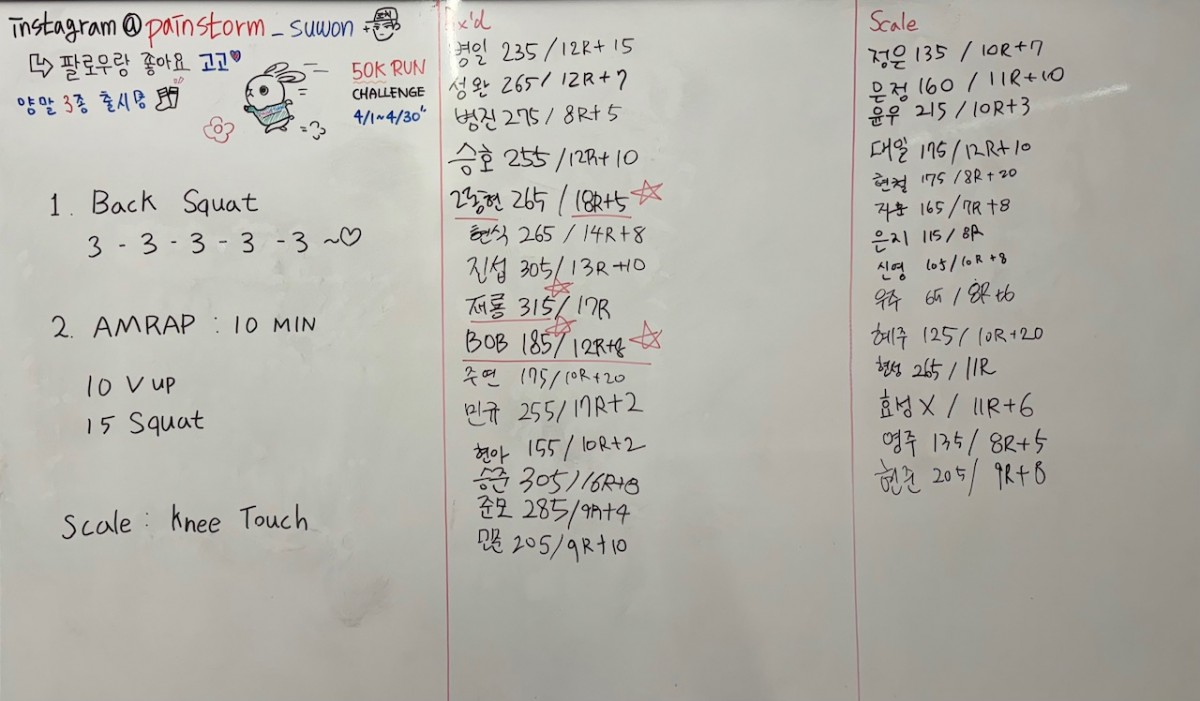 instagram@painstorm_suwon
팔로우랑 좋아요 고고
양말 3종 출시중
50K RUN
CHALLENGE
4/1~4/30"
1. Back Squat
3 - 3 - 3 - 3 - 3 ~♡
2. AMRAP : 10 MIN
10 V up
15 Squat
Scale : Knee Touch
x'd
병일 235/12R+15
성완 265/12R+7
병진 275/8R+5
승호 255/12R+10
265/18R+5
현식 265/14R+8
진섭 305/13R+10
재룡 315/17R
BOB 185/12R+8
주연 175/10R+20
민규 255/17R+2
현아 155/10R+2
승준 305/16R+8
준모 285/9R+4
205/9R+10
Scale
정은 135/10R+7
은정 160/11R+10
윤우 215/10R+3
대일 175/12R+10
현철 175/8R+20
165/7R+8
은지 115/8R
신영 105/10R+8
우주 65/8R+6
혜주 125/10R+20
현성 265/11R
효성 X/11R+6
영주 135/8R+5
현준 205/9R+8